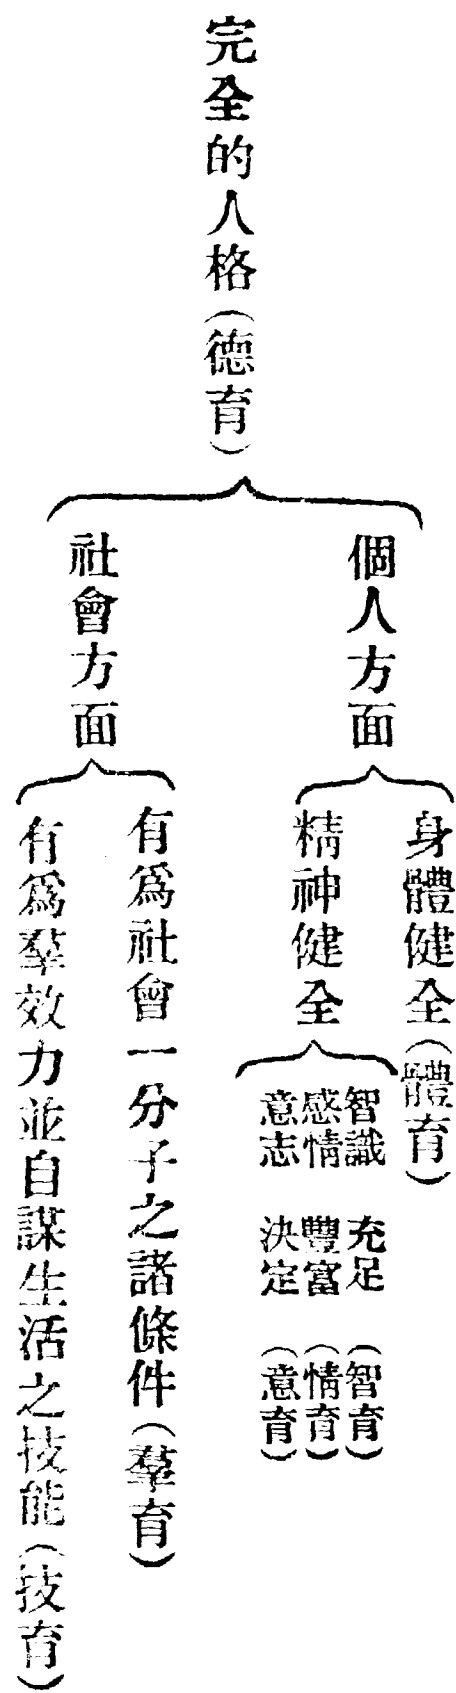 完全的人格(德育)
個人方面
身體健全(體育)
精神健全
智識 充足 (智育)
感情 豐富 (情育)
意志 決定 (意育)
社會方面
有爲社會一分子之諸條件(羣育)
有爲羣效力並自謀生活之技能(技育)